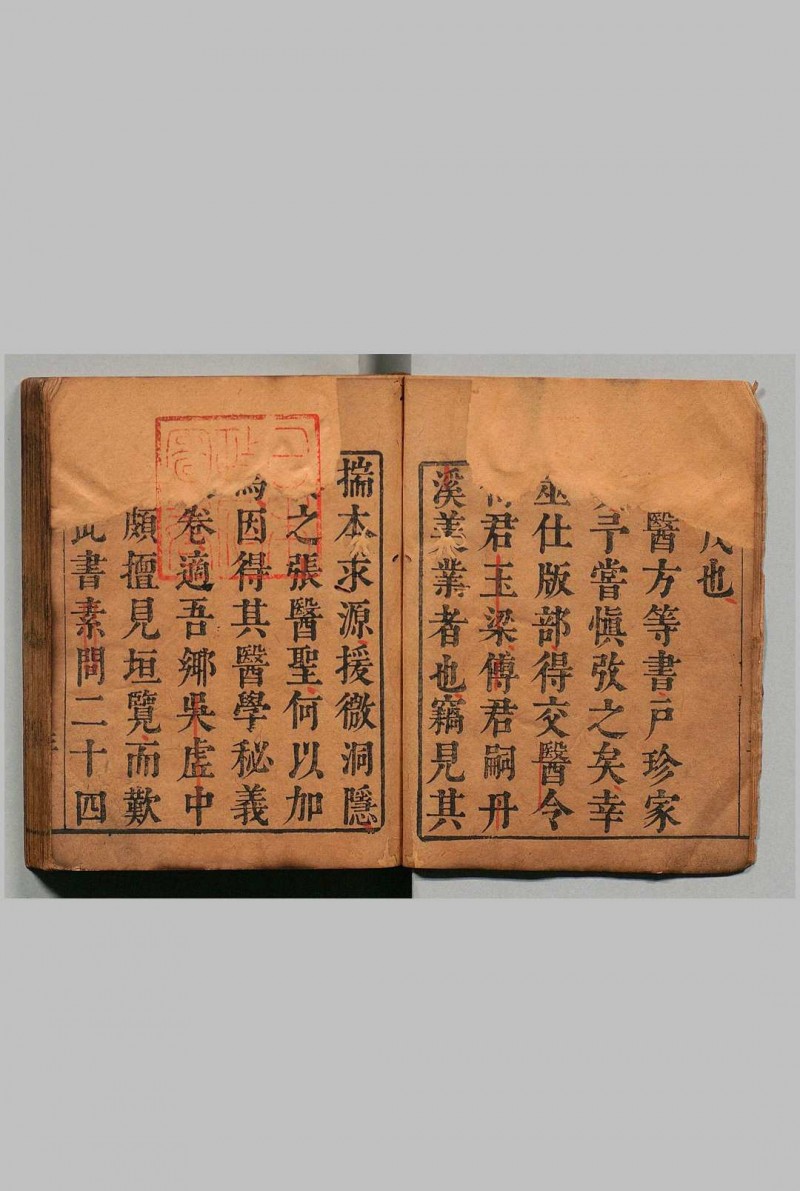 也
醫方等書戸珍家
予嘗慎攷之矣幸
筮仕版部得交醫令
君玉梁傅君嗣丹
溪美業者也竊見其
揣本求源援微洞隱
之張醫聖何以加
焉因得其醫學秘義
卷適吾鄉吳虛中
頗擅見垣覽而歎
此書素問二十四